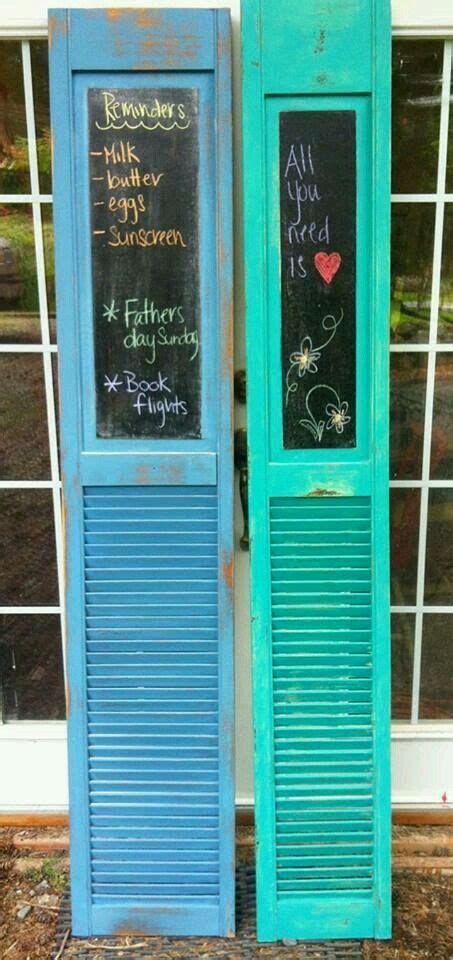 Reminders
- Milk
- butter
- eggs
- sunscreen
* Fathers
day Sunday
* Book
flights
All
you
need
is ♥